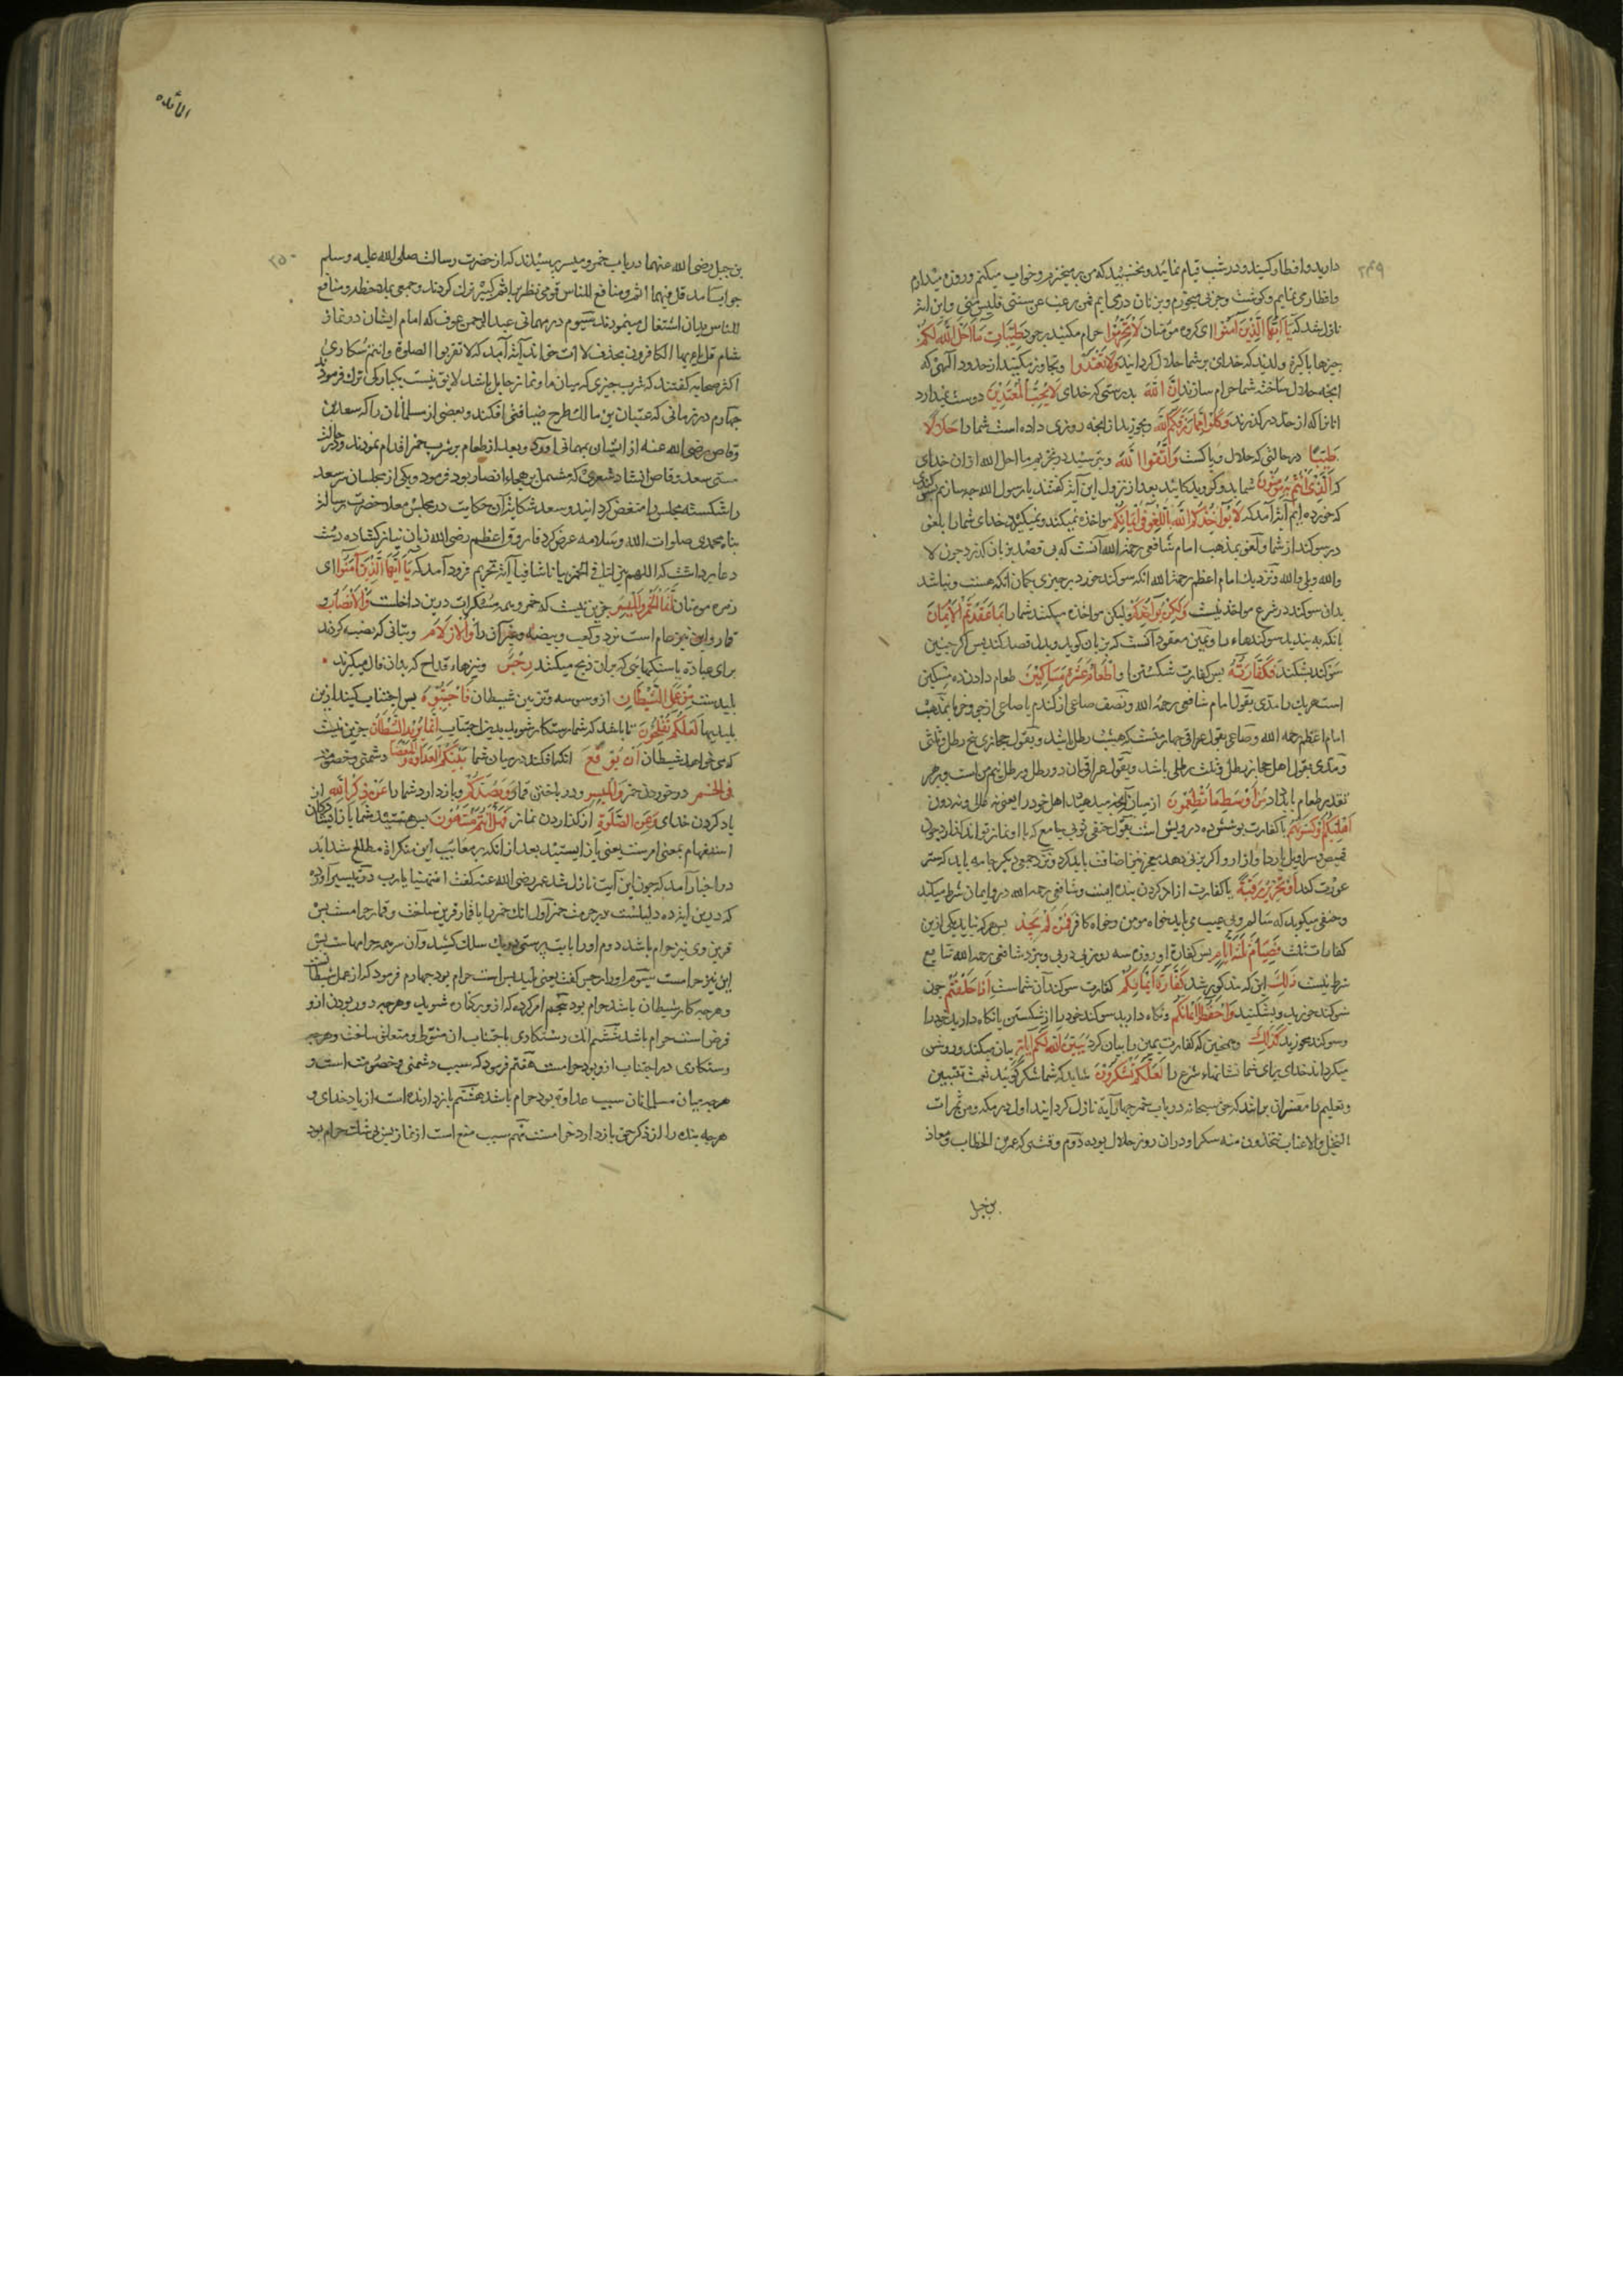 ۲۴۹
دارید و افطار کنید و در شب قیام نمائید و بخسبید که من برمیخیزم و خواب میکنم و روزه میدارم
و افطار می نمایم و کوشت و چربی میخورم و بزنان در می ایم فمن رغب عن سنتی فلیس منی و این ایة
نازل شد که یَا اَیُّهَا الَّذِینَ آمَنُوا ای کروه مؤمنان لَا تُحَرِّمُوا حرام مکنید بر خود طَیِّبَاتِ مَا اَحَلَّ اللّٰهُ لَکُمْ
چیزها پاکیزه و لذیذ که خدای بر شما حلال کردانید وَلَا تَعْتَدُوا و تجاوز مکنید از حدود الهی که
انچه حلال ساخته شما حرام سازند اِنَّ اللّٰهَ بدرستی که خدای لَا یُحِبُّ الْمُعْتَدِینَ دوست نمیدارد
انانرا که از حد در کذرند وَکُلُوا مِمَّا رَزَقَکُمُ اللّٰهُ و بخورید از انچه روزی داده است شما را حَلَالًا
طَیِّبًا در حالتی که حلال و پاکست وَاتَّقُوا اللّٰهَ و بترسید در تحریم ما احل الله از ان خدای
که الَّذِی اَنْتُمْ بِهِ مُؤْمِنُونَ شما بدو کرویدکانید بعد از نزول این آیة کفتند یا رسول الله چه سازیم سوکندی
که خورده ایم آیة آمد که لَا یُؤَاخِذُکُمُ اللّٰهُ بِاللَّغْوِ فِی اَیْمَانِکُمْ مواخذه نمیکند و نمیکیرد خدای شما را بلغو
در سوکند از شما و لغو بمذهب امام شافعی رحمة الله آنست که بی قصد بزبان کذرد چون لا
والله و بلی والله و نزدیک امام اعظم رحمة الله انکه سوکند خورد بر چیزی بکمان انکه هست و نباشد
بدان سوکند در شرع مواخذه نیست وَلٰکِنْ یُؤَاخِذُکُمْ ولیکن مواخذه میکند شما را بِمَا عَقَّدْتُمُ الْاَیْمَانَ
بانکه به بندید سوکندهاء را و یمین معقود آنست که بزبان کوید و بدل قصد کند پس اکر چنین
سوکند بشکند فَکَفَّارَتُهُ پس کفارت شکستن او اِطْعَامُ عَشَرَةِ مَسَاکِینَ طعام دادن ده مسکین
است هر یک را مدی بقول امام شافعی رحمة الله و نصف صاعی از کندم یا صاعی از جو و خرما بمذهب
امام اعظم رحمه الله و صاعی بقول عراقی چهار منست که هشت رطل باشد و بقول حجازی پنج رطل و ثلثی
و مدی بقول اهل حجاز رطل و ثلث رطلی باشد و بقول عراقیان دو رطل و رطل نیم من است و بر هر
تقدیر طعام باید داد مِنْ اَوْسَطِ مَا تُطْعِمُونَ از میان آنچه میدهید اهل خود را یعنی نه عالی و نه دون
اَهْلِیکُمْ اَوْ کِسْوَتُهُمْ یا کفارت پوشش ده درویش است بقول حنفی ثوبی جامع که با او نماز تواند کذارد چون
قمیص و سراویل یا ردا و ازار و اکر بزنی دهد معجر نیز اضافت باید کرد و نزد جمعی دیکر جامه باید که ستر
عورت کند اَوْ تَحْرِیرُ رَقَبَةٍ یا کفارت ازاد کردن بنده ایست و شافعی رحمه الله درو ایمان شرط میکند
و حنفی میکوید که سالم و بی عیب می باید خواه مومن و خواه کافر فَمَنْ لَمْ یَجِدْ پس هر که نیابد یکی ازین
کفارات ثلث فَصِیَامُ ثَلٰثَةِ اَیَّامٍ پس کفارة او روزه سه روز پی در پی و نزد شافعی رحمه الله تتابع
شرط نیست ذَالِکَ این که مذکور شد کَفَّارَةُ اَیْمَانِکُمْ کفارت سوکندان شماست اِذَا حَلَفْتُمْ چون
سوکند خورید و بشکنید وَاحْفَظُوا اَیْمَانَکُمْ و نکاه دارید سوکند خود را از شکستن یا نکاه دارید خود را
و سوکند مخورید کَذَالِکَ و همچنین که کفارت یمین را بیان کرد یُبَیِّنُ اللّٰهُ لَکُمْ اٰیَاتِهِ بیان میکند و روشن
میکرداند خدای برای شما نشانهاء شرع را لَعَلَّکُمْ تَشْکُرُونَ شاید که شما شکر کوئید نعمت تبیین
و تعلیم را مفسران برانند که حق سبحانه در باب خمر چهار آیة نازل کردانید اول در مکه و من ثمرات
النخیل و الاعناب تتخذون منه سکرا و دران روز حلال بوده دوم وقتی که عمر بن الخطاب و معاذ
بن جبل
المائده
۲۵۰
بن جبل رضی الله عنهما در باب خمر و میسر پرسیدند که از حضرت رسالت صلی الله علیه و سلم
جواب آمد قل فیهما اثم و منافع للناس قومی نظر بر اثم کبیر ترک کردند و جمعی بملاحظه و منافع
للناس بدان اشتغال مینمودند سیوم در مهمانی عبد الرحمن عوف که امام ایشان در نماز
شام قل یا ایها الکافرون بحذف لاات خواند آیة آمد که لا تقربوا الصلوة و انتم سکاری
اکثر صحابه کفتند که شرب چیزی که میان ما و نماز حایل باشد لایق نیست بیکبارکی ترک فرمودند
چهارم در زمانی که عتبان بن مالک طرح ضیافتی افکند و بعضی از مسلمانان را که سعد بن
وقاص رضی الله عنه از ایشان بمهمانی اورد و بعد از طعام بر شرب خمر اقدام نمودند و در حالت
مستی سعد وقاص انشاد شعری که مشتمل بر هجاء انصار بود فرمود و یکی از مجلسیان سر سعد
را شکسته مجلس را منغص کردانید و سعد شکایة آن حکایت در مجلس معلا حضرت رسالت
پناه محمدی صلوات الله و سلامه عرض کرد فاروق اعظم رضی الله زبان نیاز کشاده دست
دعا برداشت که اللهم بین لنا فی الخمر بیانا شافیا آیة تحریم فرود آمد که یَا اَیُّهَا الَّذِینَ آمَنُوا ای
زمره مومنان اِنَّمَا الْخَمْرُ وَالْمَیْسِرُ جزین نیست که خمر و همه مسکرات درین داخلست وَالْاَنْصَابُ و
قمار و این نیز حرام است نرد و کعب و بیضه و غیر آن را وَالْاَزْلَامُ و بتانی که نصب کردند
برای عبادة یا سنکهایی که بران ذبح میکنند رِجْسٌ و تیرهاء قداح که بدان فال میکیرند
پلیدست مِنْ عَمَلِ الشَّیْطَانِ از وسوسه و تزیین شیطان فَاجْتَنِبُوهُ پس اجتناب کنید ازین
پلیدیها لَعَلَّکُمْ تُفْلِحُونَ تا باشد که شما رستکار شوید بدین اجتناب اِنَّمَا یُرِیدُ الشَّیْطَانُ جزین نیست
که می خواهد شیطان اَنْ یُوقِعَ انکه افکند در میان شما بَیْنَکُمُ الْعَدَاوَةَ وَالْبَغْضَاءَ دشمنی و خصومت
فِی الْخَمْرِ در خوردن خمر وَالْمَیْسِرِ و در باختن قمار وَیَصُدَّکُمْ و باز دارد شما را عَنْ ذِکْرِ اللّٰهِ از
یاد کردن خدای وَعَنِ الصَّلٰوةِ از کذاردن نماز فَهَلْ اَنْتُمْ مُنْتَهُونَ پس هستید شما باز ایستادکان
استفهام بمعنی امرست یعنی باز ایستید بعد از انکه بر معایب این منکراة مطلع شداید
در اخبار آمد که چون این آیت نازل شد عمر رضی الله عنه کفت انتهینا یا رب در تیسیر آورده
که درین ایة ده دلیلست بر حرمت خمر اول انک خمر را با قمار قرین ساخت و قمار حرامست پس
قرین وی نیز حرام باشد دوم اورا با بت پرستی در یک سلک کشید و آن سر همه حرامهاست پس
این نیز حراست سیوم اورا رجس کفت یعنی پلید پس است حرام بود چهارم فرمود که از عمل شیطانست
و هر چه کار شیطان باشد حرام بود پنجم امر کرده که ازو بر کناره شوید و هر چه دور بودن ازو
فرض است حرام باشد ششم انک رستکاری باجتناب ان منوط و متعلق ساخت و هر چه
رستکاری در اجتناب ازو بود حرامست هفتم فرمود که سبب دشمنی و خصومت است و
هر چه میان مسلمانان سبب عداوة بود حرام باشد هشتم باز دارنده است از یاد خدای و
هر چه بنده را از ذکر حق باز دارد حرامست نهم سبب منع است از نماز پس بی شک حرام بود